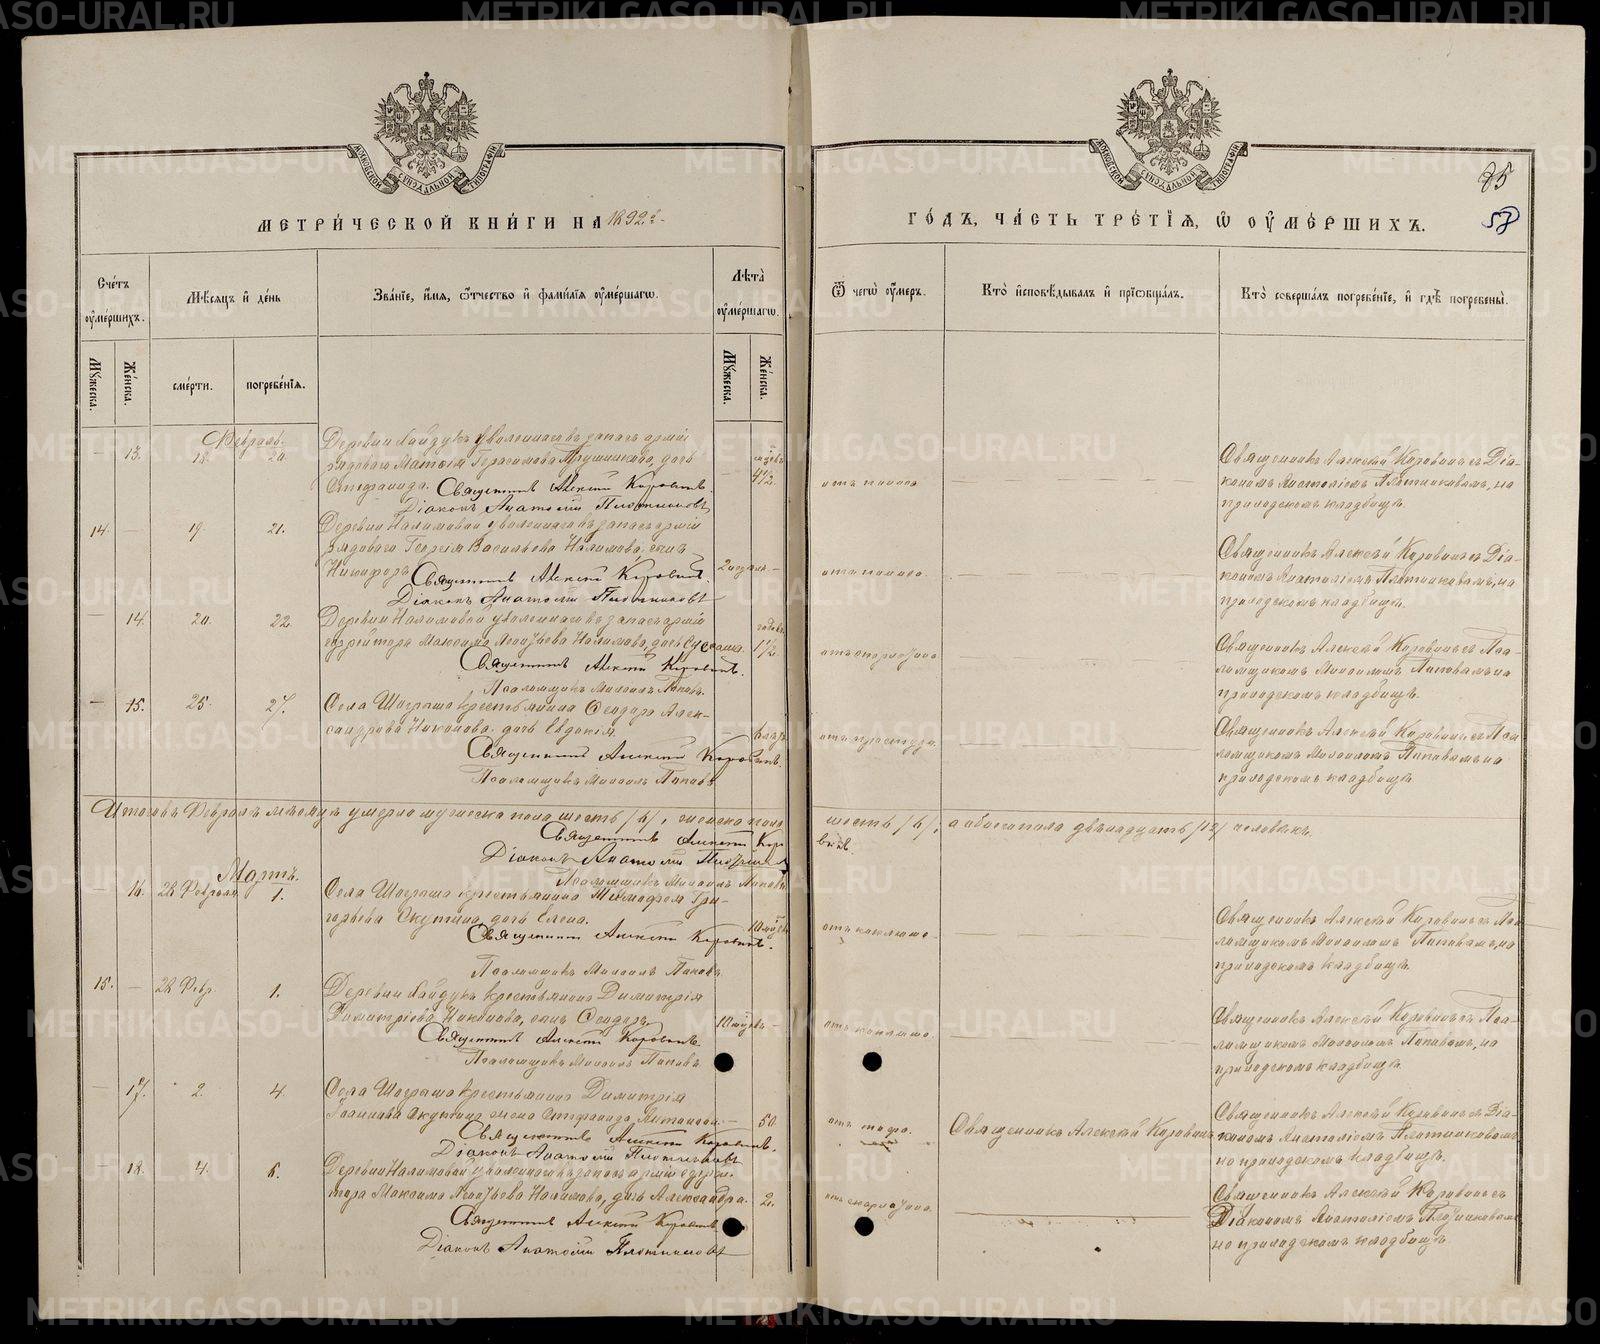 МЕТРИ́ЧЕСКОЙ КНИ́ГИ НА 1892 г.
Сче́тъ оу҆ме́ршихъ.
Мѣ́сяцъ и҆ де́нь
Зва́нїе, и҆́мѧ, ѻ҆́тчество и҆ фами́лїѧ оу҆ме́ршагѡ.
Лѣ́та оу҆ме́ршагѡ.
Мꙋ́жеска.
Же́нска.
сме́рти.
погребе́нїѧ.
Мꙋ́жеска.
Же́нска.
Февраль.
13. 18. 20.
Деревни Кайдукъ уволеннаго въ запасъ арміи
рядоваго Герасимова дочь
Степанида. Священникъ Алексѣй Коровинъ.
Діаконъ Анатолій Плотниковъ
4 1/2.
14. 19. 21.
Деревни Налимовой уволеннаго въ запасъ арміи
рядоваго Георгія Васильева Налимова, сынъ
Никифоръ Священникъ Алексѣй Коровинъ.
Діаконъ Анатолій Плотниковъ
14. 20. 22.
Деревни Налимовой уволеннаго въ запасъ арміи
Максима Налимова, дочь 1 1/2
Священникъ Алексѣй Коровинъ.
Псаломщикъ Михаилъ Поповъ.
15. 25. 27.
Села Шограша крестьянина Ѳеодора Алек-
сандрова Никонова дочь Евдокія
Священникъ Алексѣй Коровинъ.
Псаломщикъ Михаилъ Поповъ
Итого въ Февралѣ мѣсяцѣ умерло мужеска пола шесть /6/, женска пола
Священникъ Алексѣй Коро
Діаконъ Анатолій
Псаломщикъ Михаилъ Поповъ
Мартъ.
16. 28 Февраля 1.
Села Шограша крестьянина Тимофея Гри-
горьева Окутина дочь Елена.
Священникъ Алексѣй Коровинъ.
Псаломщикъ Михаилъ Поповъ
15. 28 Февр. 1.
Деревни Кайдукъ крестьянина Димитрія
Димитріева Никонова, сынъ Ѳеодоръ
Священникъ Алексѣй Коровинъ
Псаломщикъ Михаилъ Поповъ
17. 2. 4.
Села Шограша крестьянина Димитрія
Іоаннова Окутина жена Степанида 50
Священникъ Алексѣй Коровинъ.
Діаконъ Анатолій Плотниковъ
18. 4. 6.
Деревни Налимовой уволеннаго въ запасъ арміи
Максима Налимова, дочь Александра. 2.
Священникъ Алексѣй Коровинъ
Діаконъ Анатолій Плотниковъ
ГО́ДЪ, ЧА́СТЬ ТРЕ́ТЇѦ, Ѡ҆ ОУ҆МЕ́РШИХЪ.
85
58
Ѿ чегѡ̀ оу҆́меръ.
Кто̀ и҆сповѣ́дывалъ и҆ прїѡбща́лъ.
Кто̀ соверша́лъ погребе́нїе, и҆ гдѣ̀ погребены̀.
отъ поноса
Священникъ Алексѣй Коровинъ съ Діа-
кономъ Анатоліемъ Плотниковымъ, на
приходскомъ кладбищѣ.
отъ поноса.
Священникъ Алексѣй Коровинъ съ Діа-
кономъ Анатоліемъ Плотниковымъ, на
приходскомъ кладбищѣ.
отъ скарлатина
Священникъ Алексѣй Коровинъ съ Пса-
ломщикомъ Михаиломъ Поповымъ на
приходскомъ кладбищѣ.
отъ простуды.
Священникъ Алексѣй Коровинъ съ Пса
ломщикомъ Михаиломъ Поповымъ на
приходскомъ кладбищѣ
шесть /6/, а обоего пола двѣнадцать /12/ человѣкъ.
отъ коклюша.
Священникъ Алексѣй Коровинъ съ Пса
ломщикомъ Михаиломъ Поповымъ, на
приходскомъ кладбищѣ.
отъ коклюша.
Священникъ Алексѣй Коровинъ съ Пса-
ломщикомъ Михаиломъ Поповымъ, на
приходскомъ кладбищѣ.
отъ тифа.
Священникъ Алексѣй Коровинъ
Священникъ Алексѣй Коровинъ съ Діа-
кономъ Анатоліемъ Плотниковымъ
на приходскомъ кладбищѣ.
отъ скарлатина.
Священникъ Алексѣй Коровинъ съ
Діакономъ Анатоліемъ Плотниковымъ
на приходскомъ кладбищѣ
METRIKI.GASO-URAL.RU